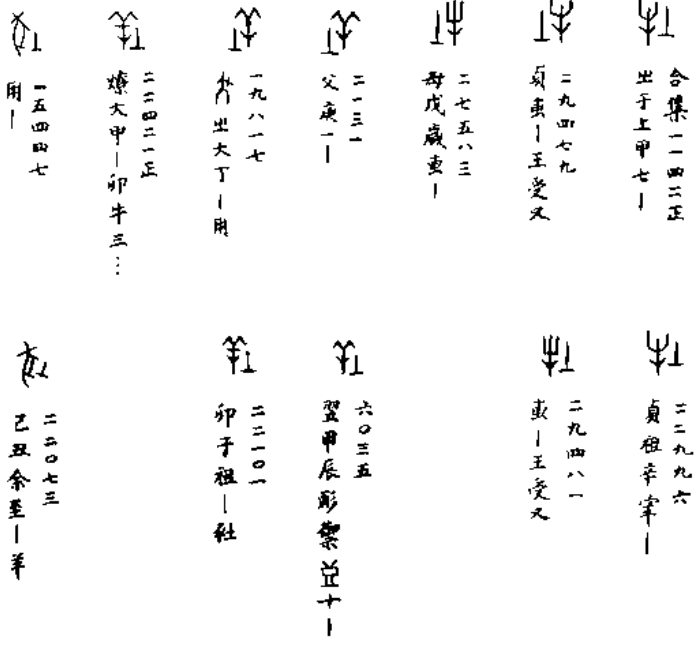 合集一一四二正
㞢于上甲七｜
二九四七九
貞叀｜王受又
二七五八三
母戊歲叀｜
二一三一
父庚一｜
一九八一七
㞢大丁｜用
二二四二一正
燎大甲｜卯牛三…
一五四四七
用｜
二二九九六
貞祖辛宰｜
二九四八一
叀｜王受又
六〇三五
翌甲辰禦十｜
二二一〇一
卯于祖｜社
二二〇七三
己丑余至｜羊